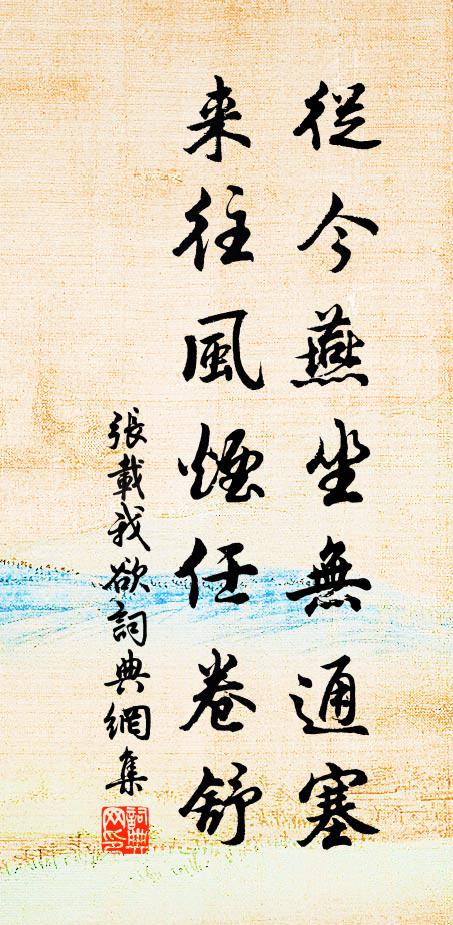 從今燕坐無通塞
来往風煙任卷舒
張載我欲詞典網集
詞典
网印